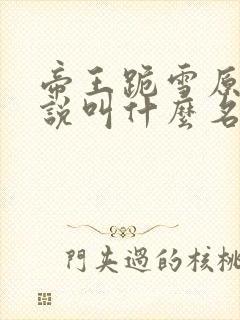 帝王跪雪原
說叫什麼名
門失過的核桃